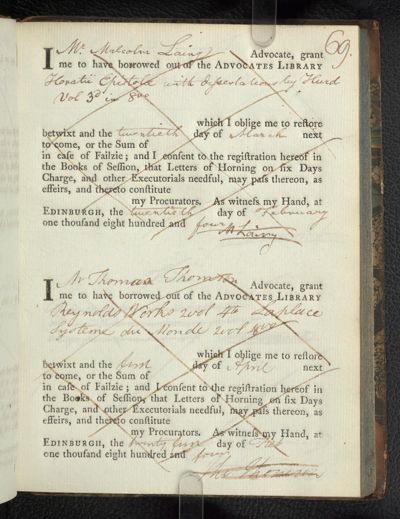 69.
I Mr. Malcolm Laing Advocate, grant
me to have borrowed out of the ADVOCATES LIBRARY
Horatii Epistolæ with dissertations by Hurd
Vol 3d in 8vo
which I oblige me to reſtore
betwixt and the twentieth day of March next
to come, or the Sum of
in caſe of Failzie; and I conſent to the regiſtration hereof in
the Books of Seſſion, that Letters of Horning on ſix Days
Charge, and other Executorials needful, may paſs thereon, as
effeirs, and thereto conſtitute
my Procurators. As witneſs my Hand, at
EDINBURGH, the twentieth day of February
one thouſand eight hundred and four
M Laing
I Mr Thomas Thomson Advocate, grant
me to have borrowed out of the ADVOCATES LIBRARY
Reynolds Works 2 vol 4to Laplace
Systeme du Monde 2 vol 8vo
which I oblige me to reſtore
betwixt and the first day of April next
to come, or the Sum of
in caſe of Failzie; and I conſent to the regiſtration hereof in
the Books of Seſſion, that Letters of Horning on ſix Days
Charge, and other Executorials needful, may paſs thereon, as
effeirs, and thereto conſtitute
my Procurators. As witneſs my Hand, at
EDINBURGH, the twenty first day of Feb
one thouſand eight hundred and four
Tho Thomson